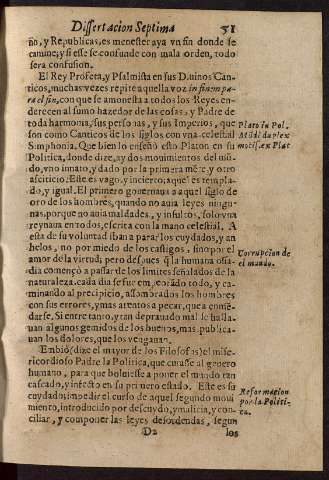 Dissertacion Septima 51
ño, y Republicas, es menester aya vn fin donde se
camine; y si esse se confunde con mala orden, todo
sera confusion.
El Rey Profeta, y Psalmista en sus Diuinos Can-
ticos, muchas vezes repite aquella voz in finem pa-
ra el fin, con que se amonesta a todos los Reyes en-
derecen al sumo hazedor de las cosas, y Padre de
toda harmonia, sus personas, y sus Imperios, que
son como Canticos de los siglos con vna celestial
Simphonia. Que bien lo enseñó esto Platon en su
Politica, donde dize, ay dos mouimientos del mũ-
do, vno innato, y dado por la primera mẽte, y otro
ascíticio: Este es vago, y incierto; aquel es templa-
do, y igual. El primero gouernaua aquel siglo de
oro de los hombres, quando no auia leyes ningu-
nas, porque no auia maldades, y insultos, solo vna
reynaua en todos, escrita con la mano celestial. A
esta de su voluntad iban a parar los cuydados, y an
helos, no por miedo de los castigos, sino por el
amor de la virtud; pero despues q̃ la humana osa-
dia començó a passar de los limites señalados de la
naturaleza, cada dia se fue empeorãdo todo, y ca-
minando al precipicio, assombrados los hombres
con sus errores, y mas atentos a pecar, que a consi-
derarse. Si entre tanto, y tan deprauado mal se halla-
uan algunos gemidos de los buenos, mas publica-
uan los dolores, que los vengauan.
Embió (dize el mayor de los Filosofos) el mise-
ricordioso Padre la Politica, que curasse al genero
humano, para que boluiesse a poner el mundo tan
cascado, y infecto en su primero estado. Este es su
cuydado, impedir el curso de aquel segundo moui
miento, introducido por descuydo, y malicia, y con-
ciliar, y componer las leyes desordenadas, segun
D2 los
Plato in Pol.
ex Plat
Corrupcion de
el mundo.
Reformacion
por la Politi-
ca.